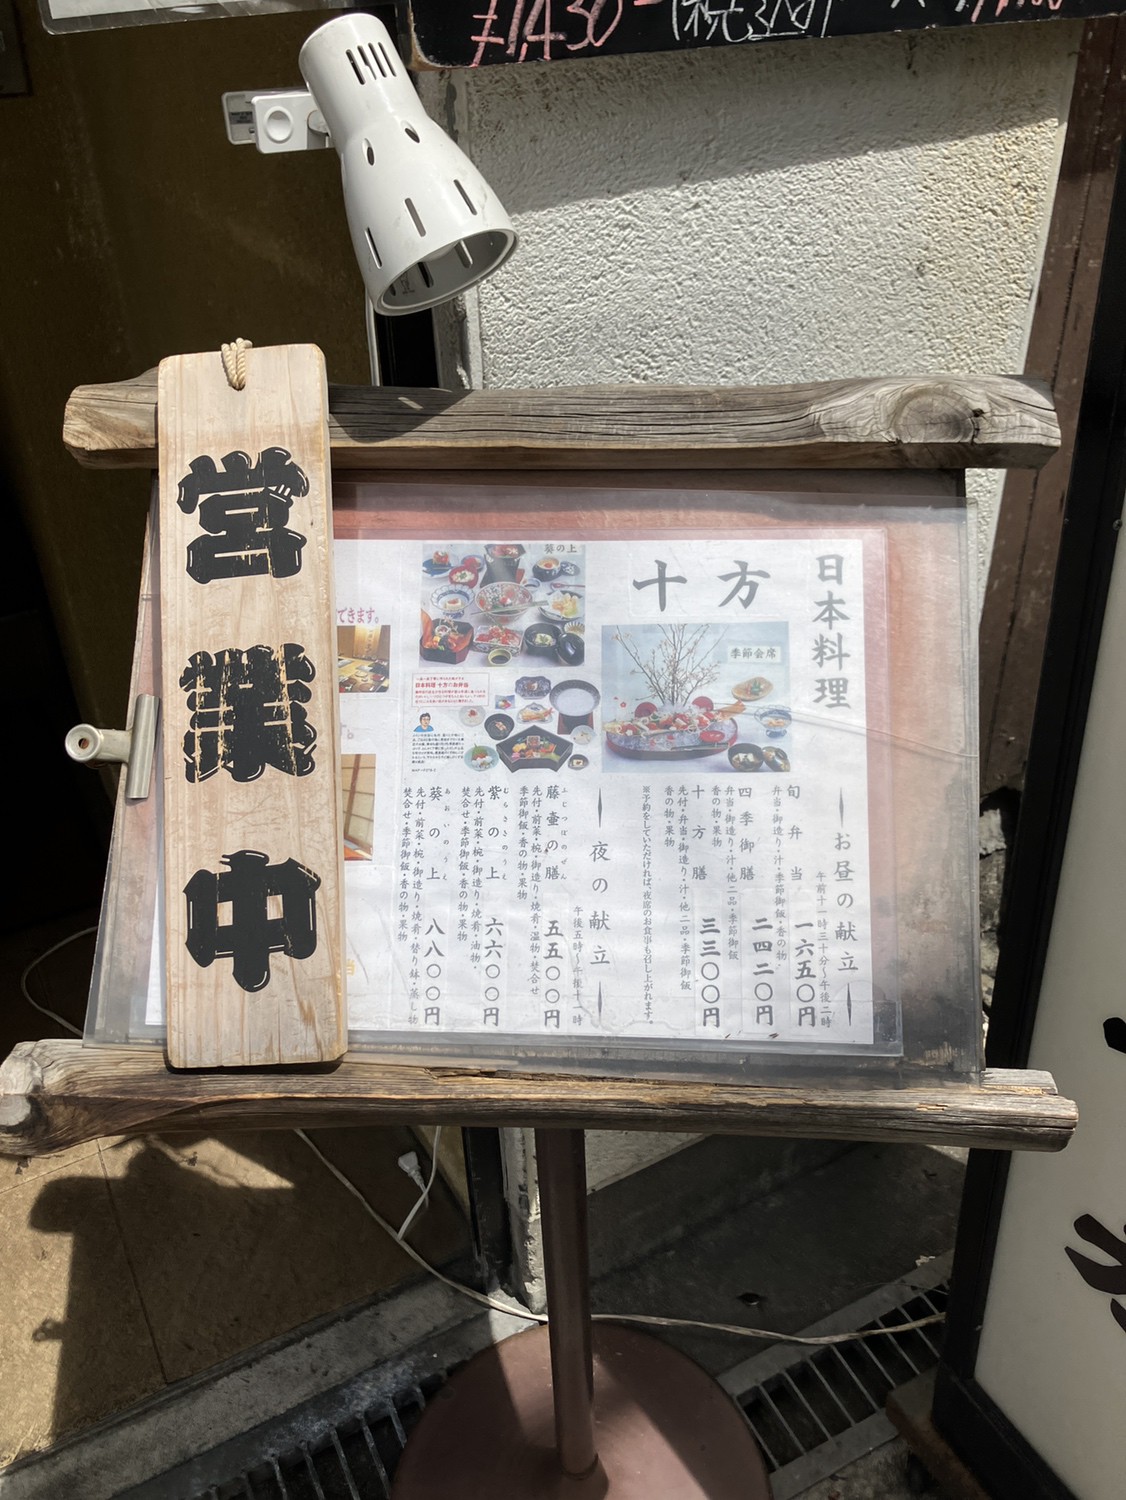 ¥1,430
(税込)
営業中
日本料理
十方
季節会席
葵の上
できます。
日本料理 十方のお弁当
―お昼の献立―
午前十一時三十分〜午後二時
旬弁当 一六五〇円
弁当・御造り・汁・季節御飯・香の物・
四季御膳 二四二〇円
弁当・御造り・汁・他二品・季節御飯
香の物・果物
十方膳 三三〇〇円
先付・弁当・御造り・汁・他二品・季節御飯
香の物・果物
※予約をしていただければ、夜席のお食事も召し上がれます。
―夜の献立―
午後五時〜午後十一時
藤壷の膳 五五〇〇円
ふじつぼのぜん
先付・前菜・椀・御造り・焼肴・温物・焚合せ
季節御飯・香の物・果物
紫の上 六六〇〇円
むらさきのうえ
先付・前菜・椀・御造り・焼肴・油物・
焚合せ・季節御飯・香の物・果物
葵の上 八八〇〇円
あおいのうえ
先付・前菜・椀・御造り・焼肴・替り鉢・蒸し物
焚合せ・季節御飯・香の物・果物